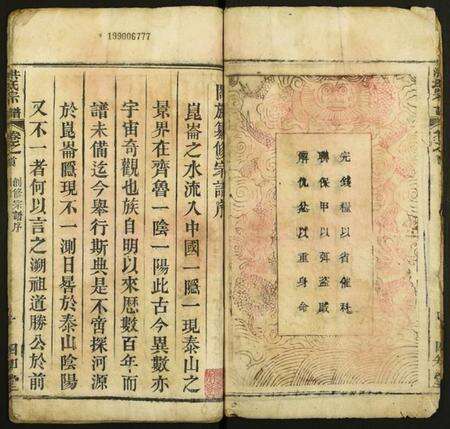 199006777
完錢糧以省催科
聯保甲以弭盜賊
解仇忿以重身命
族纂修宗譜序
崑崙之水流入中國一隱一現泰山之
景界在齊魯一陰一陽此古今異數亦
宇宙奇觀也族自明以來歷數百年而
譜未備迄今舉行斯典是不啻探河源
於崑崙隱現不一測日晷於泰山陰陽
又不一者何以言之溯祖道勝公於前
洪氏宗譜
卷之首
創修宗譜序